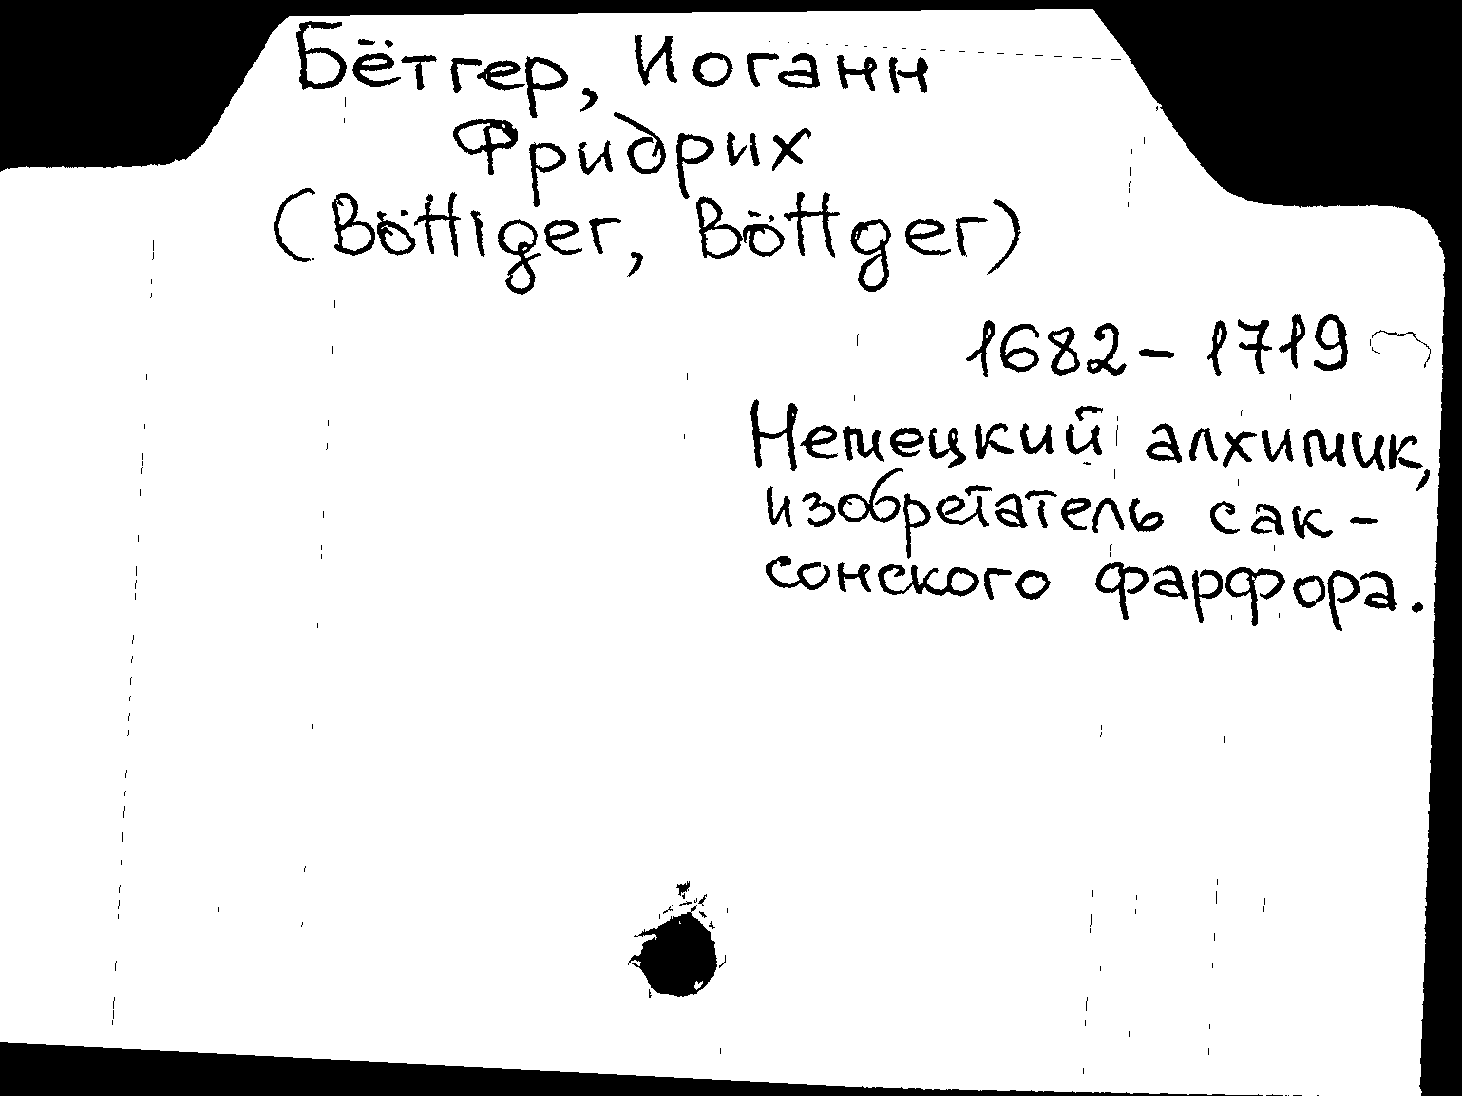 Бётгер, Иоганн
Фридрих
(Böttiger, Böttger)
1682 – 1719
Немецкий алхимик,
изобретатель сак-
сонского фарфора.